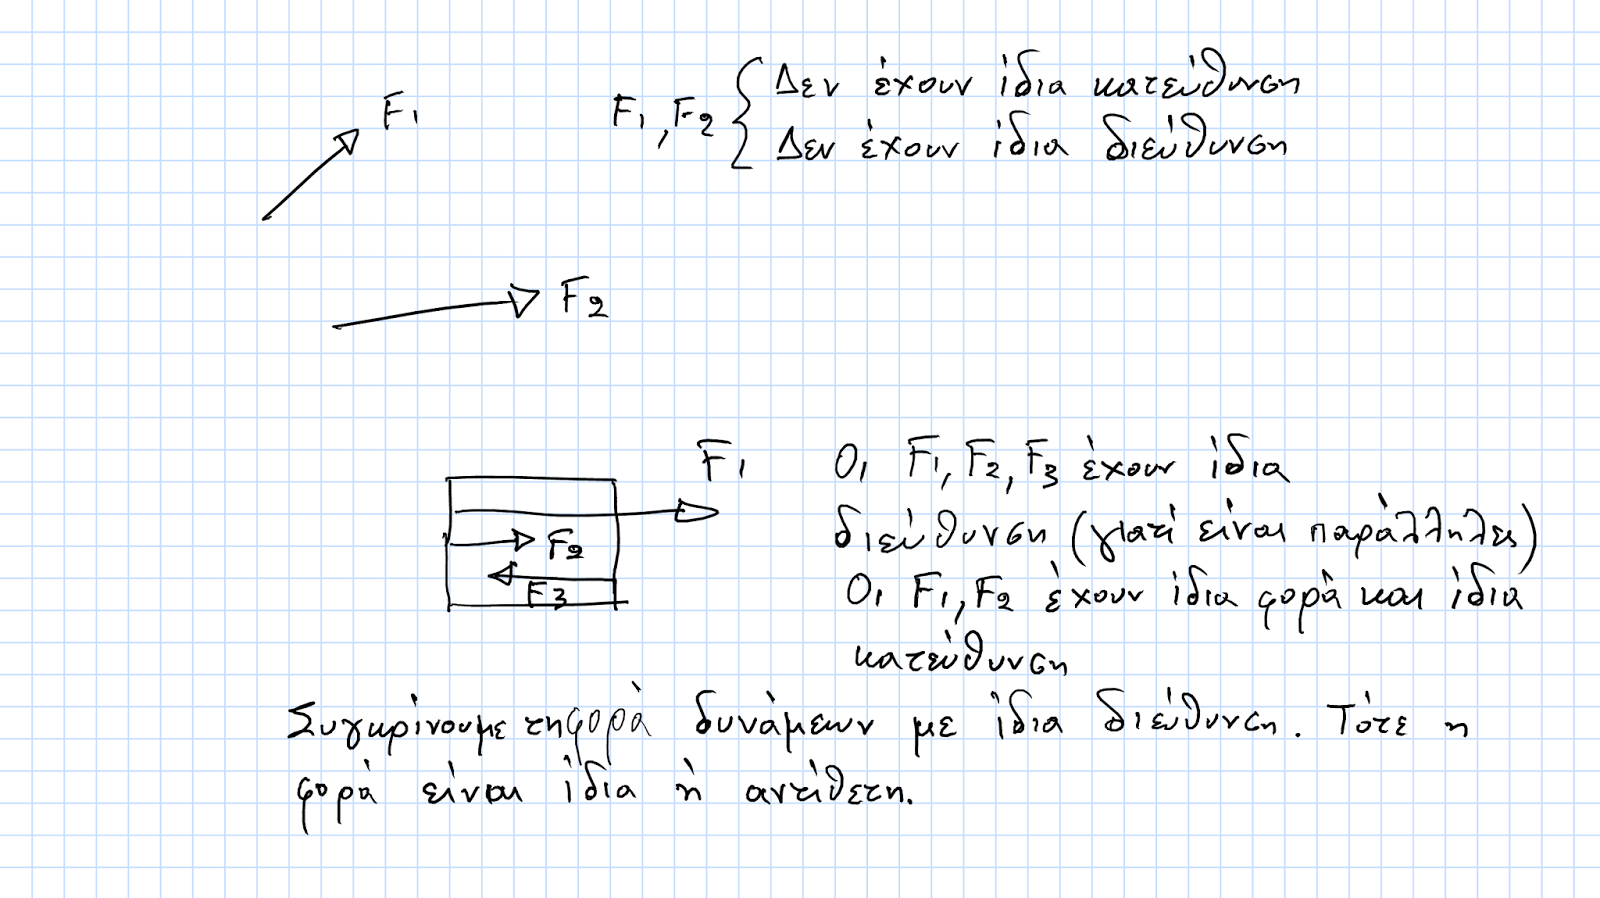 F1
F1, F2 { Δεν έχουν ίδια κατεύθυνση
Δεν έχουν ίδια διεύθυνση
F2
F1
F2
F3
Οι F1, F2, F3 έχουν ίδια
διεύθυνση (γιατί είναι παράλληλες)
Οι F1, F2 έχουν ίδια φορά και ίδια
κατεύθυνση
Συγκρίνουμε τη φορά δυνάμεων με ίδια διεύθυνση. Τότε η
φορά είναι ίδια ή αντίθετη.